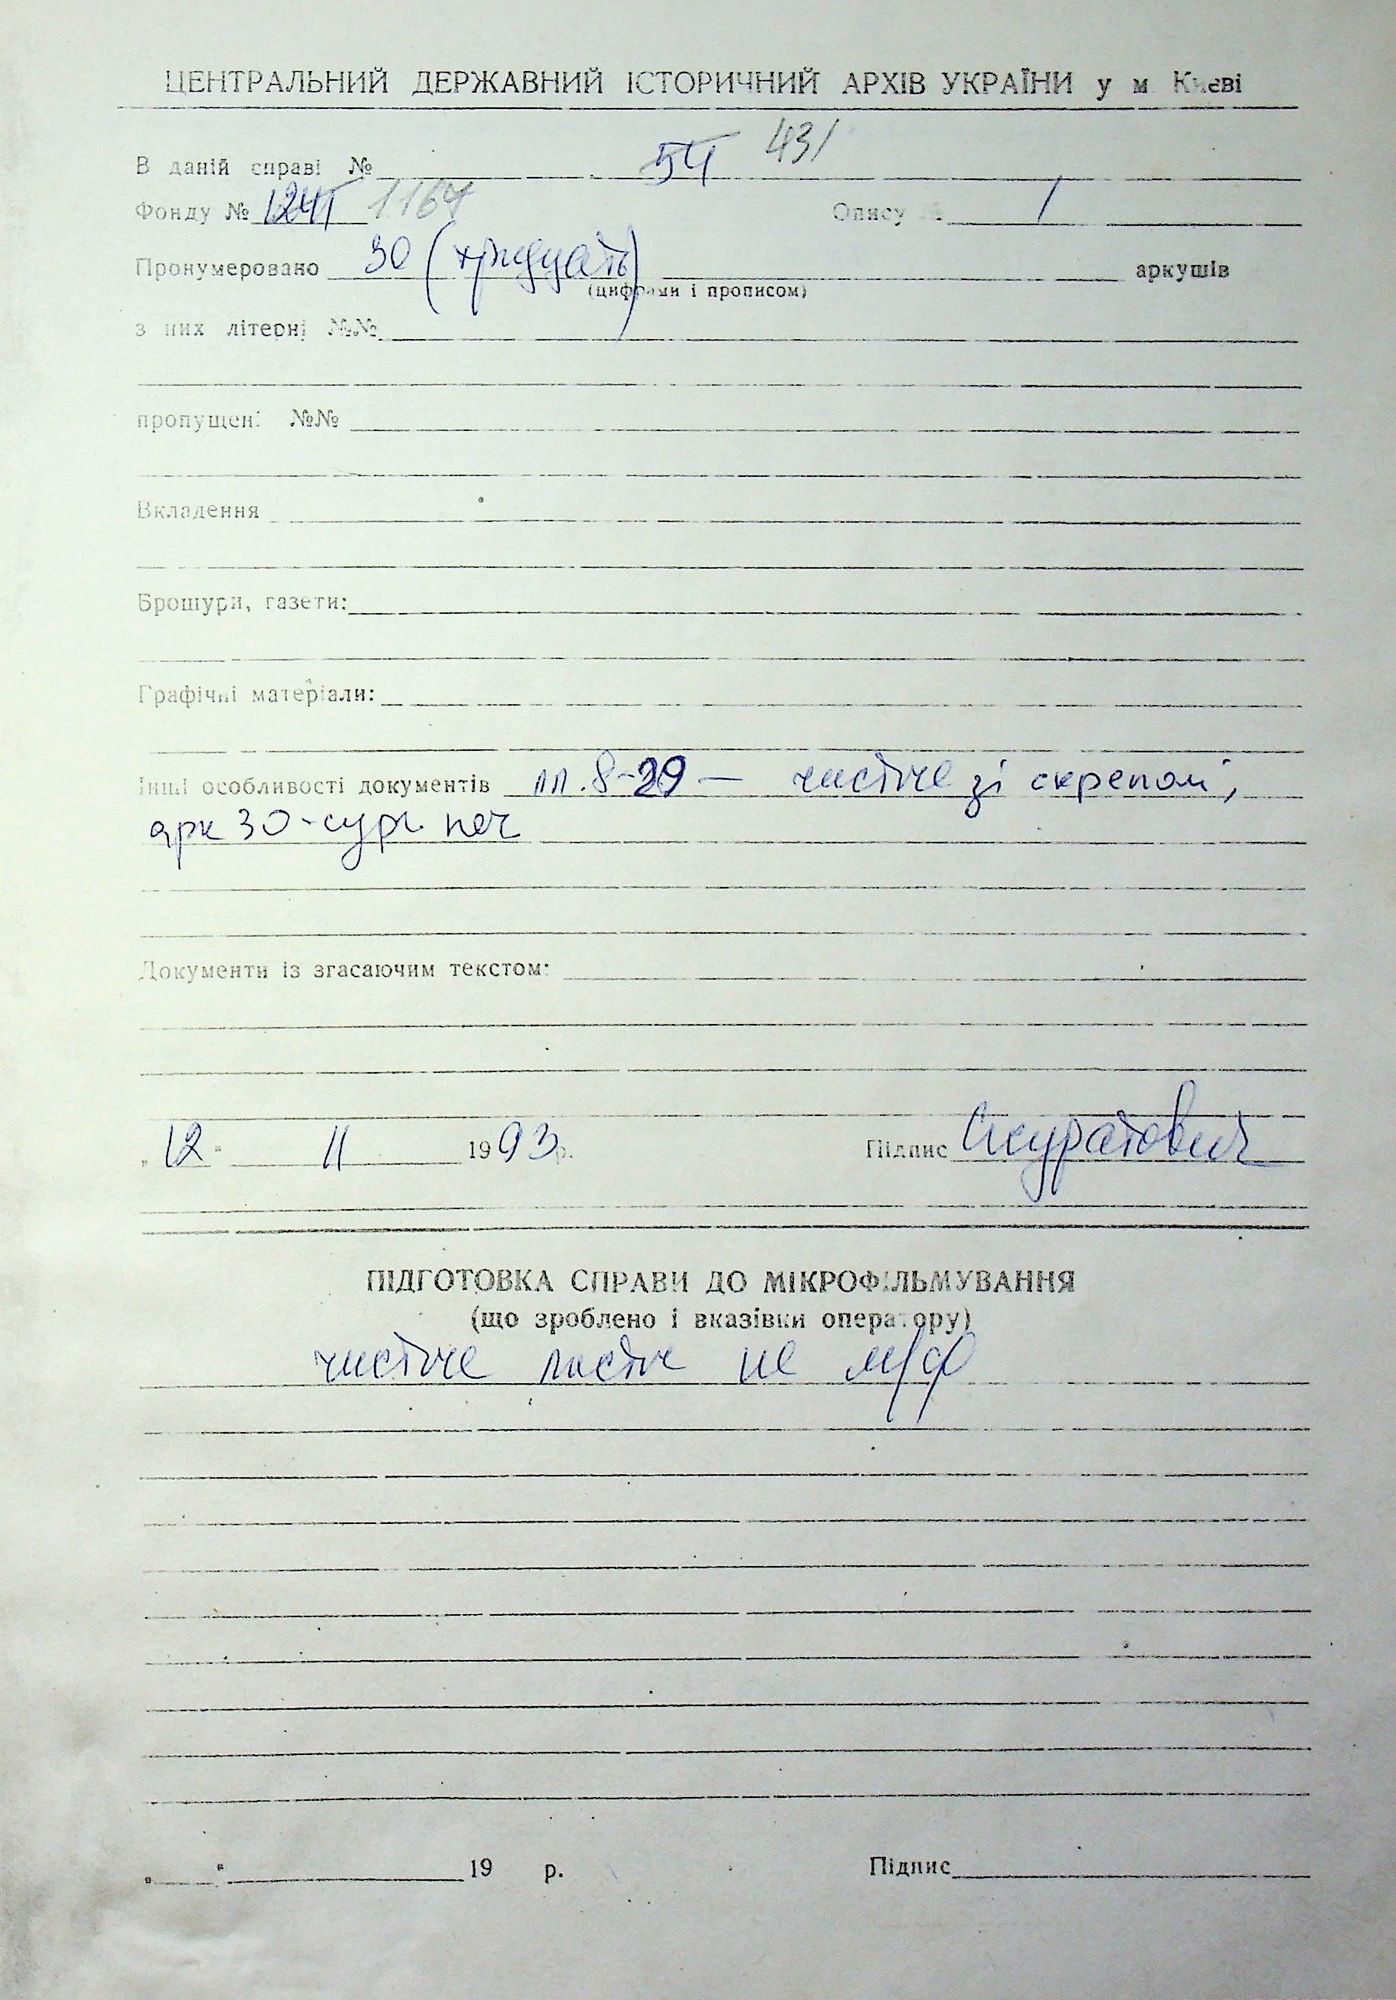 ЦЕНТРАЛЬНИЙ ДЕРЖАВНИЙ ІСТОРИЧНИЙ АРХІВ УКРАЇНИ у м Києві
В даній справі № 54 431
Фонду № 1241 1167 Опису № 1
Пронумеровано 30 (тридцать) аркушів
(цифрами і прописом)
з них літерні №№
пропущені №№
Вкладення
Брошури, газети:
Графічні матеріали:
Інші особливості документів лл. 8-29 — чистые зі скрепой,
арк 30 - сург. печ
Документи із згасаючим текстом:
„12“ 11 1993 р. Підпис Скуратович
ПІДГОТОВКА СПРАВИ ДО МІКРОФІЛЬМУВАННЯ
(що зроблено і вказівки оператору)
чистые листы не м/ф
„ “ 19 р. Підпис